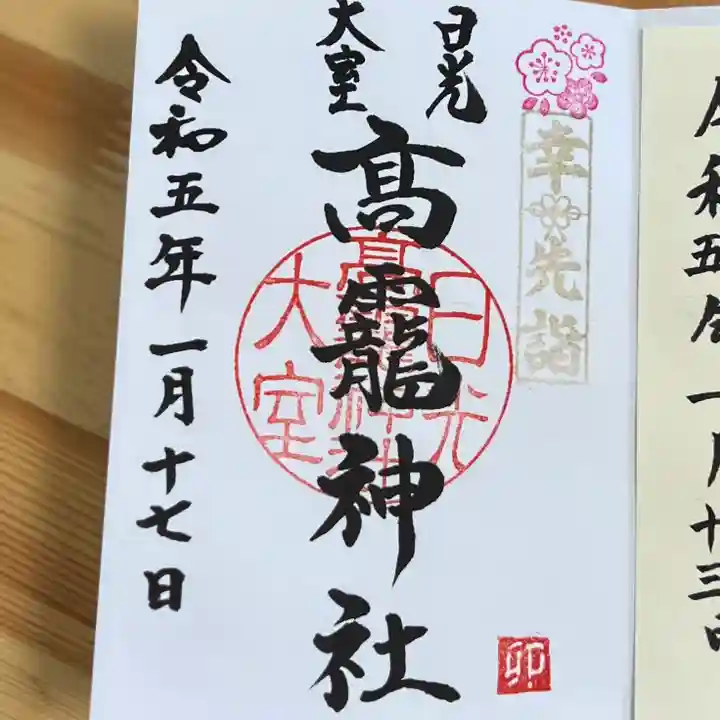 幸先詣
日光
大室
高龗神社
日光
高龗神社
大室
卯
令和五年一月十七日
令和五年一月十三日